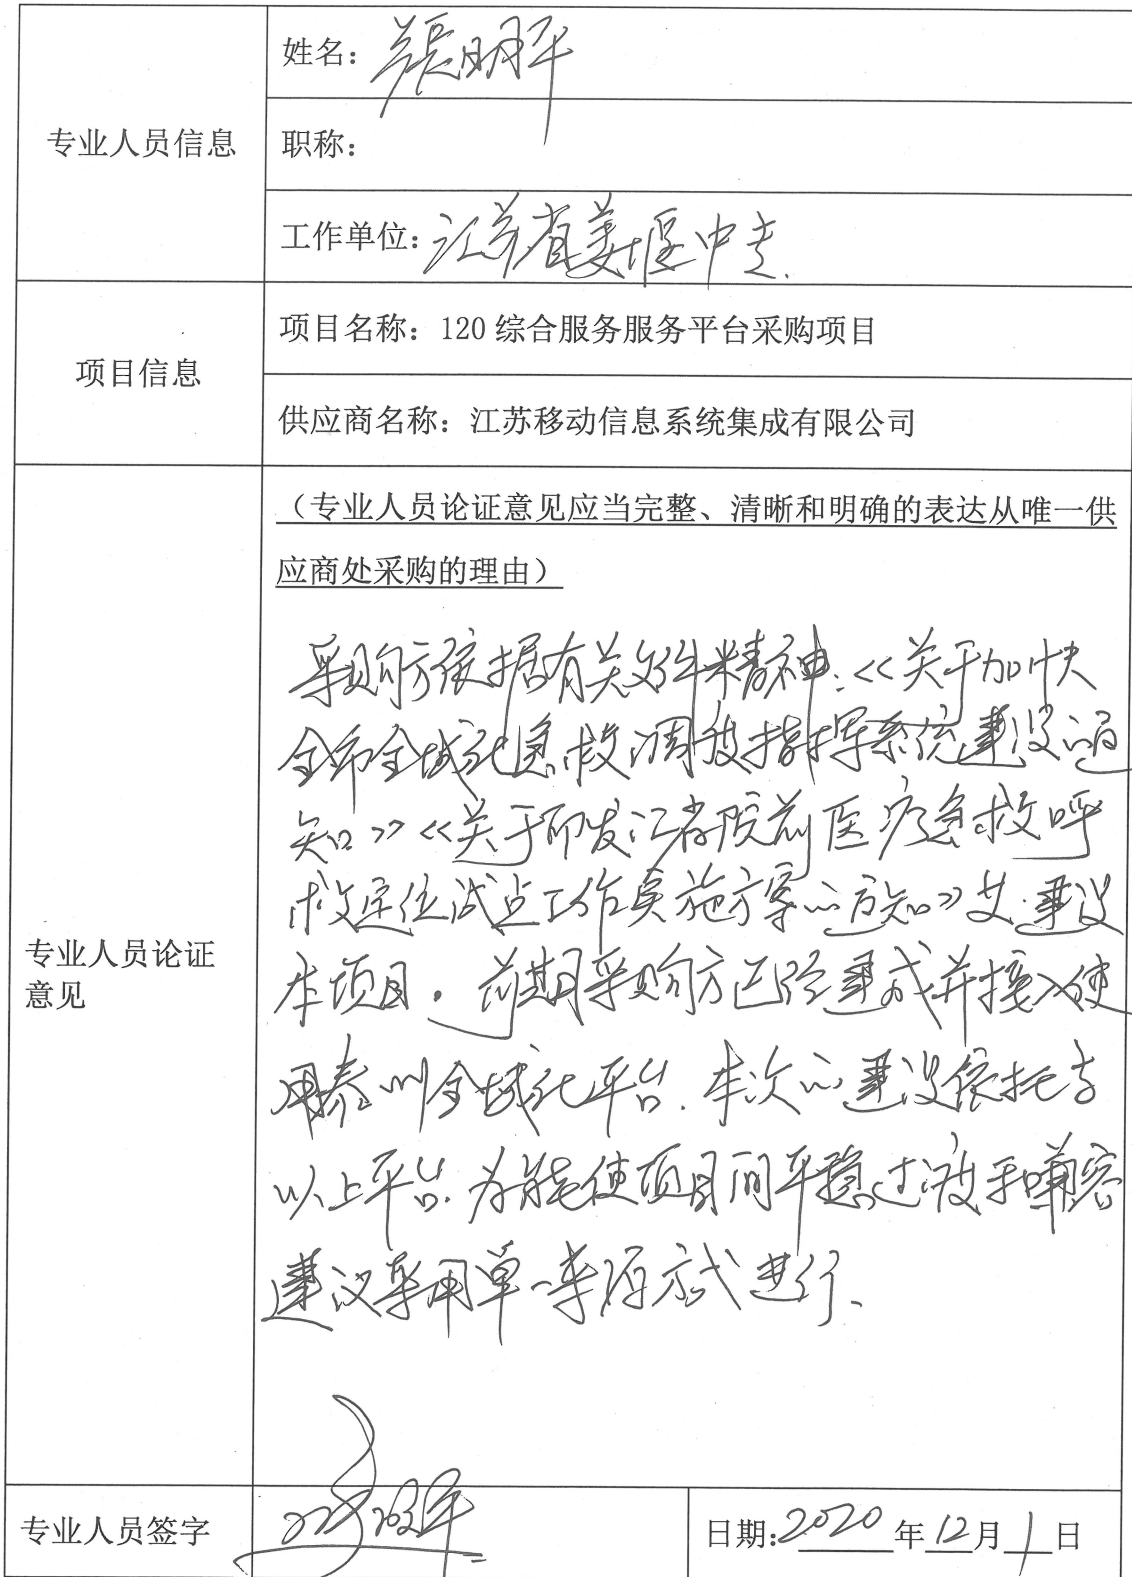 姓名：张明平
专业人员信息
职称：
工作单位：江苏省姜堰中专.
项目信息
项目名称：120综合服务服务平台采购项目
供应商名称：江苏移动信息系统集成有限公司
（专业人员论证意见应当完整、清晰和明确的表达从唯一供
应商处采购的理由）
采购方依据有关文件精神:《关于加快
全市全域化急救调度指挥系统建设的通
知》《关于印发江省院前医疗急救呼
救定位试点工作实施方案的通知》 建设
专业人员论证
意见
本项目. 前期采购方已经建成并接入使
用泰州全域化平台. 本次的建设依托于
以上平台. 为能使项目间平稳过渡和兼容
建议采用单一来源方式进行.
专业人员签字
张明平
日期:2020年12月1日